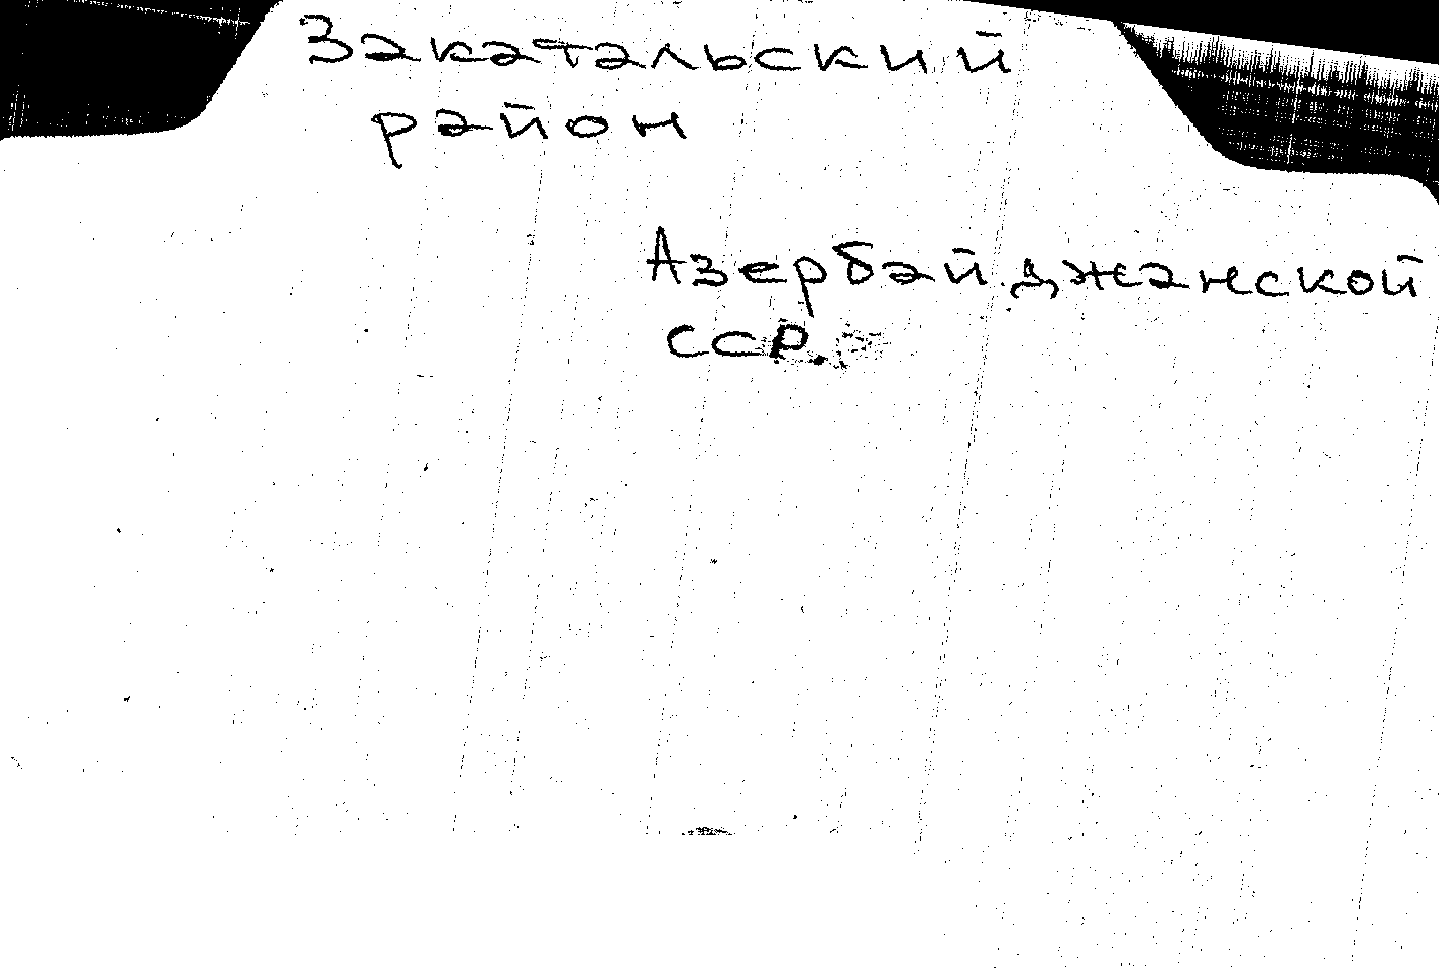 Закатальский
район
Азербайджанской
ССР.